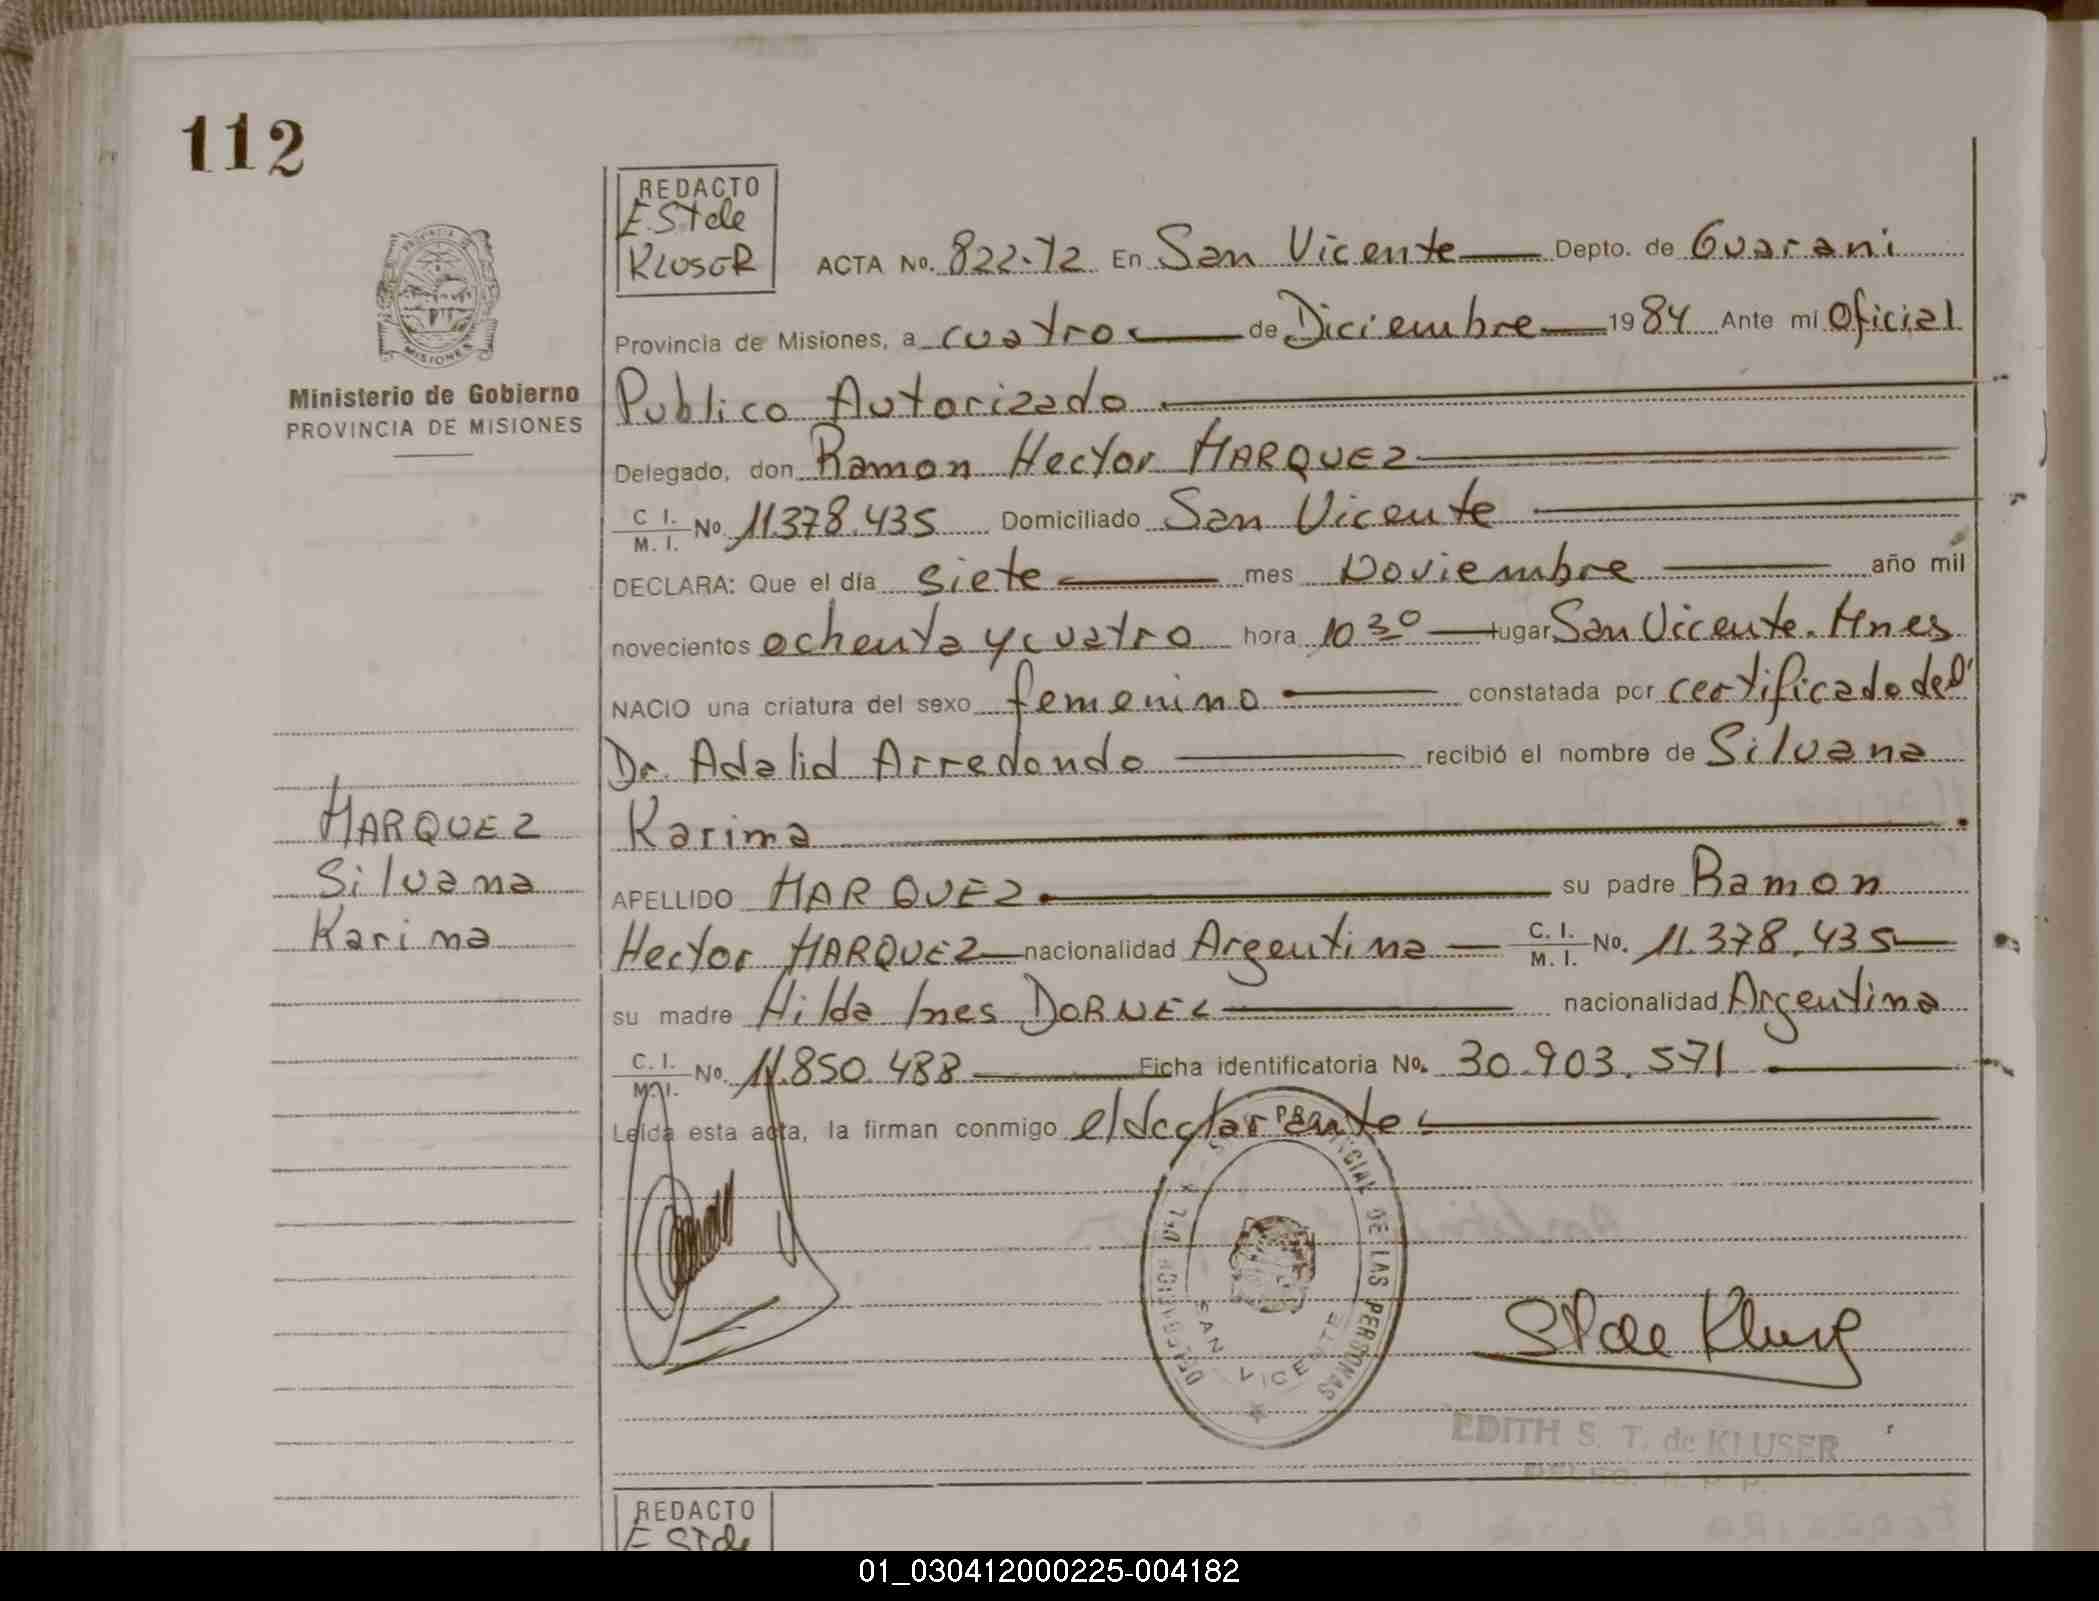 112
PROVINCIA DE
MISIONES
Ministerio de Gobierno
PROVINCIA DE MISIONES
REDACTO
E. S T de
KLUSER
ACTA No. 822-T2 En San Vicente Depto. de Guarani
Provincia de Misiones, a cuatro de Diciembre 1984 Ante mi Oficial
Publico Autorizado
Delegado, don Ramon Hector MARQUEZ
C. I.
M. I. No 11.378.435 Domiciliado San Vicente
DECLARA: Que el día siete mes Noviembre año mil
novecientos ochenta y cuatro hora 10 30 lugar San Vicente. Mnes
NACIO una criatura del sexo femenino constatada por certificado del
Dr. Adalid Arredondo recibió el nombre de Silvana
Karina
APELLIDO MARQUEZ su padre Ramon
Hector MARQUEZ nacionalidad Argentina C. I.
M. I. No. 11.378.435
su madre Hilda Ines DORNEL nacionalidad Argentina
C. I.
M. I. No. 11.850.488 Ficha identificatoria No. 30.903.571
Leída esta acta, la firman conmigo el declarante
MARQUEZ
Silvana
Karina
DE LAS PERSONAS
SAN VICENTE
ST de Kluser
EDITH S. T. de KLUSER
REDACTO
E ST de
01_030412000225-004182